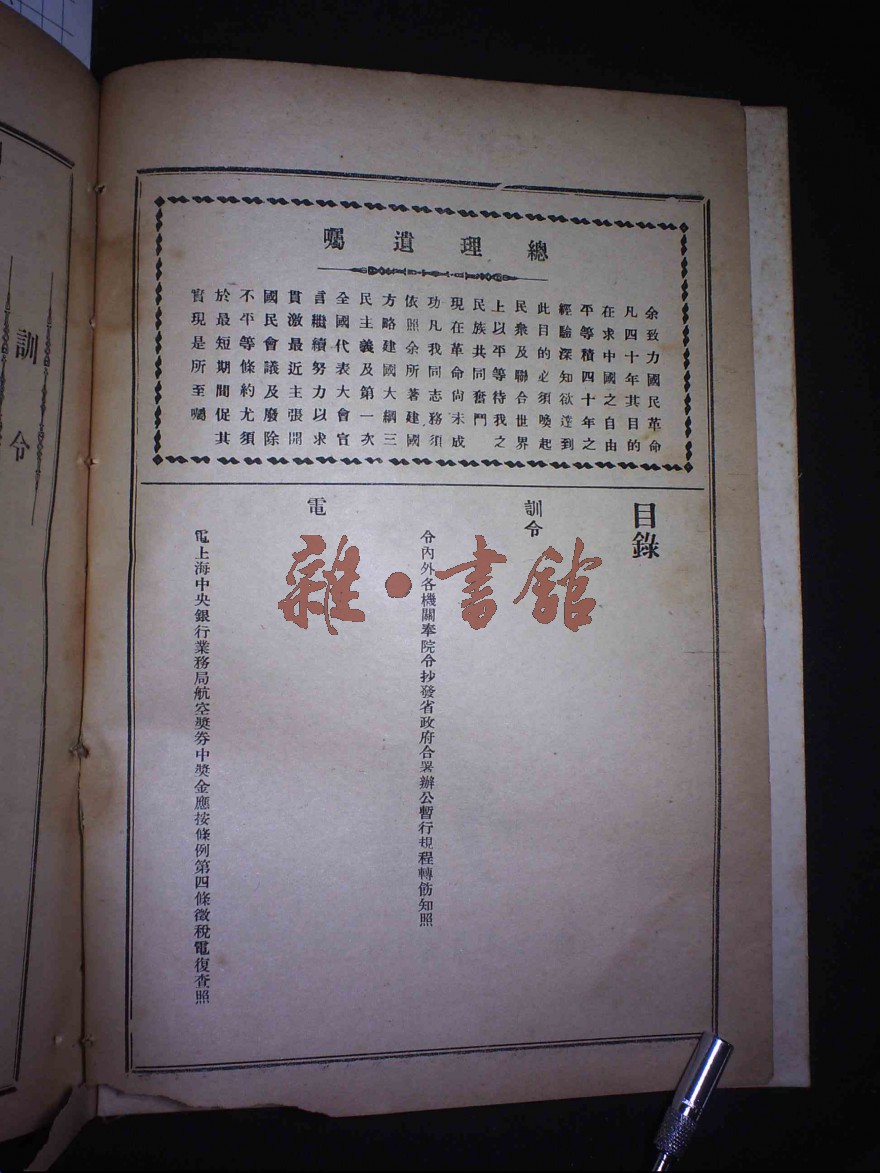 總理遺囑
余致力國民革命
凡四十年其目的
在求中國之自由
平等積四十年之
經驗深知欲達到
此目的必須喚起
民衆及聯合世界
上以平等待我之
民族共同奮鬥
現在革命尚未成
功凡我同志務須
依照余所著建國
方略建國大綱三
民主義及第一次
全國代表大會宣
言繼續努力以求
貫激最近主張開
國民會議及廢除
不平等條約尤須
於最短期間促其
實現是所至囑
目錄
訓令
令內外各機關奉院令抄發省政府合署辦公暫行規程轉飭知照
電
電上海中央銀行業務局航空獎券中獎金應按條例第四條徵稅電復查照
雜·書館
訓令